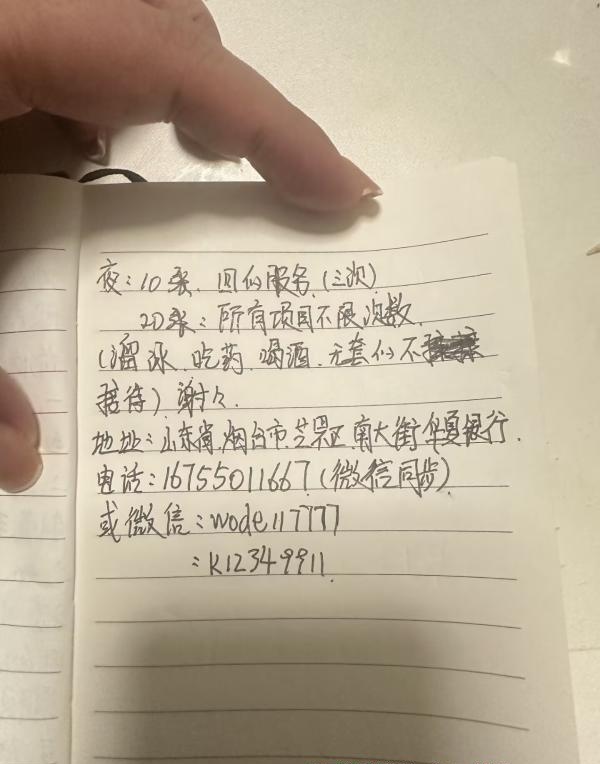 夜：10张．回仂服务．(三次)
20张：所有项目不限次数．
(溜冰．吃药．喝酒．无套仂不
接待) 谢々．
地址：山东省．烟台市．芝罘区．南大街．华夏银行．
电话：16755011667 (微信同步)
或微信：wode117777
：K12349911